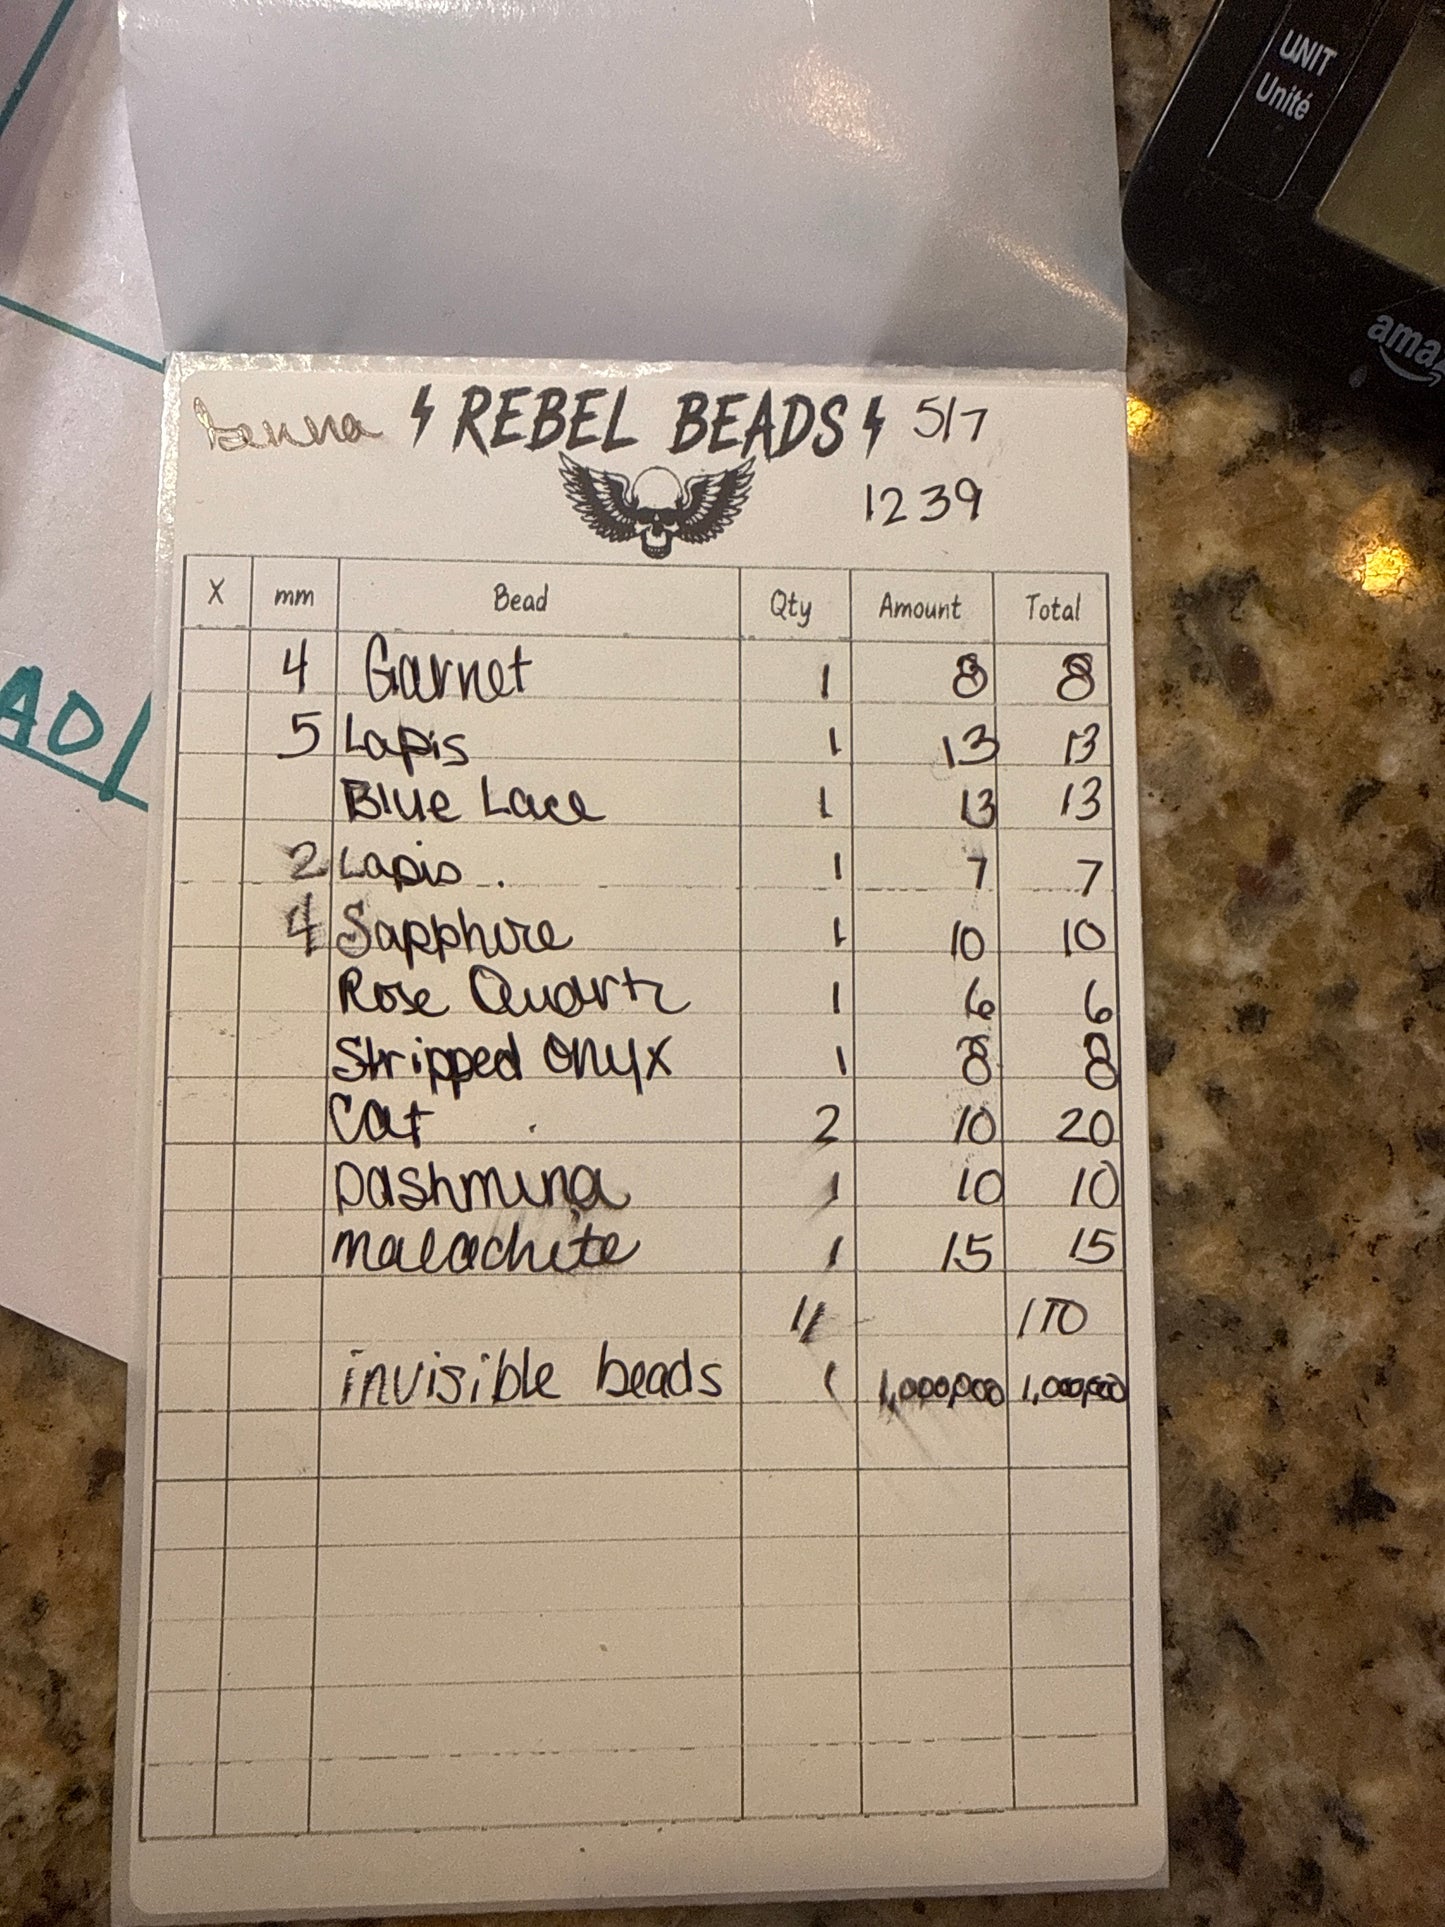 UNIT
Unité
amaz
REBEL BEADS 5/7
1239
X mm Bead Qty Amount Total
4 Garnet 1 8 8
5 Lapis 1 13 13
Blue Lace 1 13 13
2 Lapis 1 7 7
4 Sapphire 1 10 10
Rose Quartz 1 6 6
Stripped Onyx 1 8 8
Cat 2 10 20
Pashmina 1 10 10
malachite 1 15 15
11 110
invisible beads 1 1,000,000 1,000,000